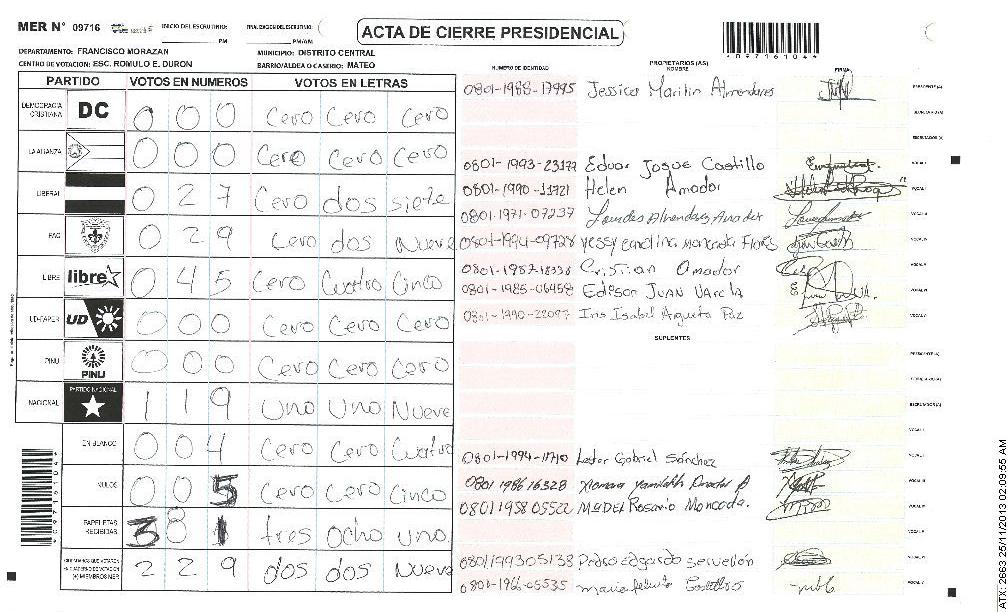 MER N° 09716
INICIO DEL ESCRUTINIO: PM
FINALIZACION DEL ESCRUTINIO: PM/AM
ACTA DE CIERRE PRESIDENCIAL
*09716104*
DEPARTAMENTO: FRANCISCO MORAZAN
MUNICIPIO: DISTRITO CENTRAL
CENTRO DE VOTACION: ESC. ROMULO E. DURON
BARRIO/ALDEA O CASERIO: MATEO
PARTIDO VOTOS EN NUMEROS VOTOS EN LETRAS
DEMOCRACIA CRISTIANA DC 0 0 0 Cero Cero Cero
LA ALIANZA 0 0 0 Cero Cero Cero
LIBERAL 0 2 7 Cero dos siete
PAC 0 2 9 Cero dos Nueve
LIBRE libre 0 4 5 Cero Cuatro Cinco
UD-FAPER UD 0 0 0 Cero Cero Cero
PINU PINU 0 0 0 Cero Cero Cero
NACIONAL PARTIDO NACIONAL 1 1 9 Uno Uno Nueve
EN BLANCO 0 0 4 Cero Cero Cuatro
NULOS 0 0 5 Cero Cero Cinco
PAPELETAS RECIBIDAS 3 8 1 tres Ocho uno
CIUDADANOS QUE VOTARON EN CUADERNO DE VOTACION (+) MIEMBROS MER 2 2 9 dos dos Nueve
*09716104*
NUMERO DE IDENTIDAD
PROPIETARIOS (AS)
NOMBRE
FIRMA
0801-1988-17995 Jessica Marilin Almendares PRESIDENTE(A)
SECRETARIO(A)
ESCRUTADOR(A)
0801-1993-23177 Eduar Josue Castillo VOCAL I
0801-1990-11721 Helen Amador
0801-1971-07237 Lourdes Almendares Amador
0801-1994-09728 yessy carolina Moncada Flores
0801-1987-18338 Cristian Amador
0801-1985-06458 Edisor JUAN Varela
0801-1990-22097 Iris Isabel Argueta Paz
SUPLENTES
PRESIDENTE(A)
SECRETARIO(A)
ESCRUTADOR(A)
VOCAL I
0801-1994-11710 Lester Gabriel Sánchez
0801 1986 16328
0801 1958 05522 Ma DEL Rosario Moncada.
0801199305138 Pedro edgardo servellón
0801-1966-05535
ATX: 2963 25/11/2013 02:09:55 AM